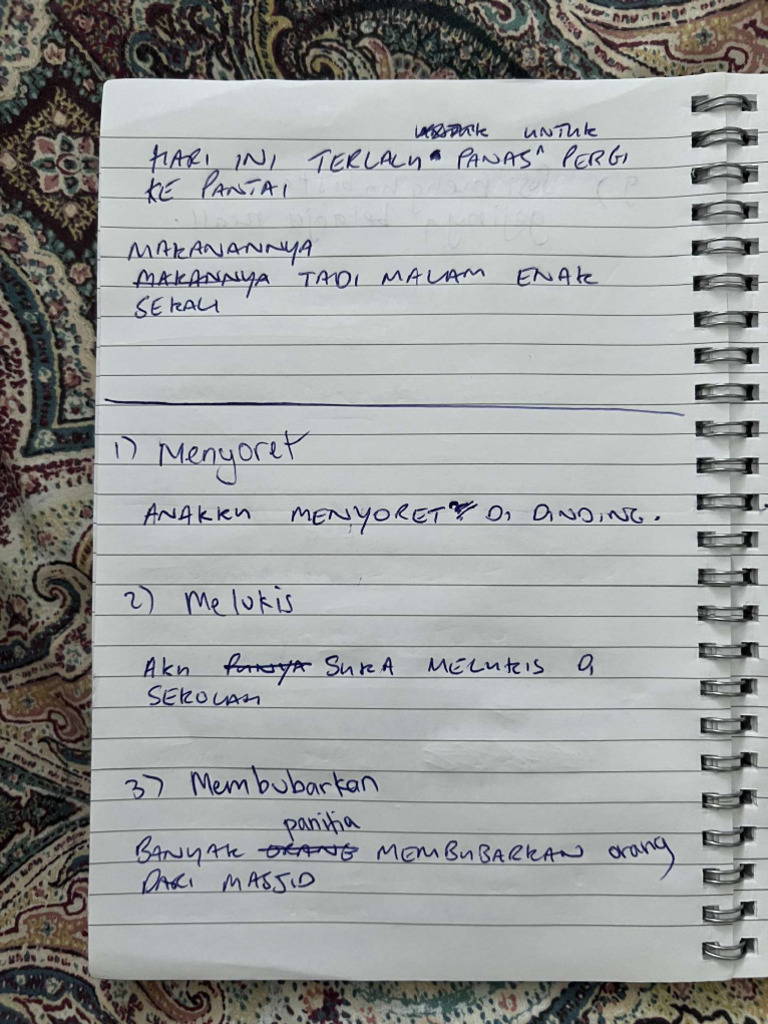 UNTUK
HARI INI TERLALU PANAS ^ PERGI
KE PANTAI
MAKANANNYA
MAKANNYA TADI MALAM ENAK
SEKALI
1) Menyoret
ANAKKU MENYORET DI DINDING.
2) Melukis
AKU PUNYA SUKA MELUKIS DI
SEKOLAH
3) Membubarkan
panitia
BANYAK ORANG MEMBUBARKAN orang
DARI MASJID